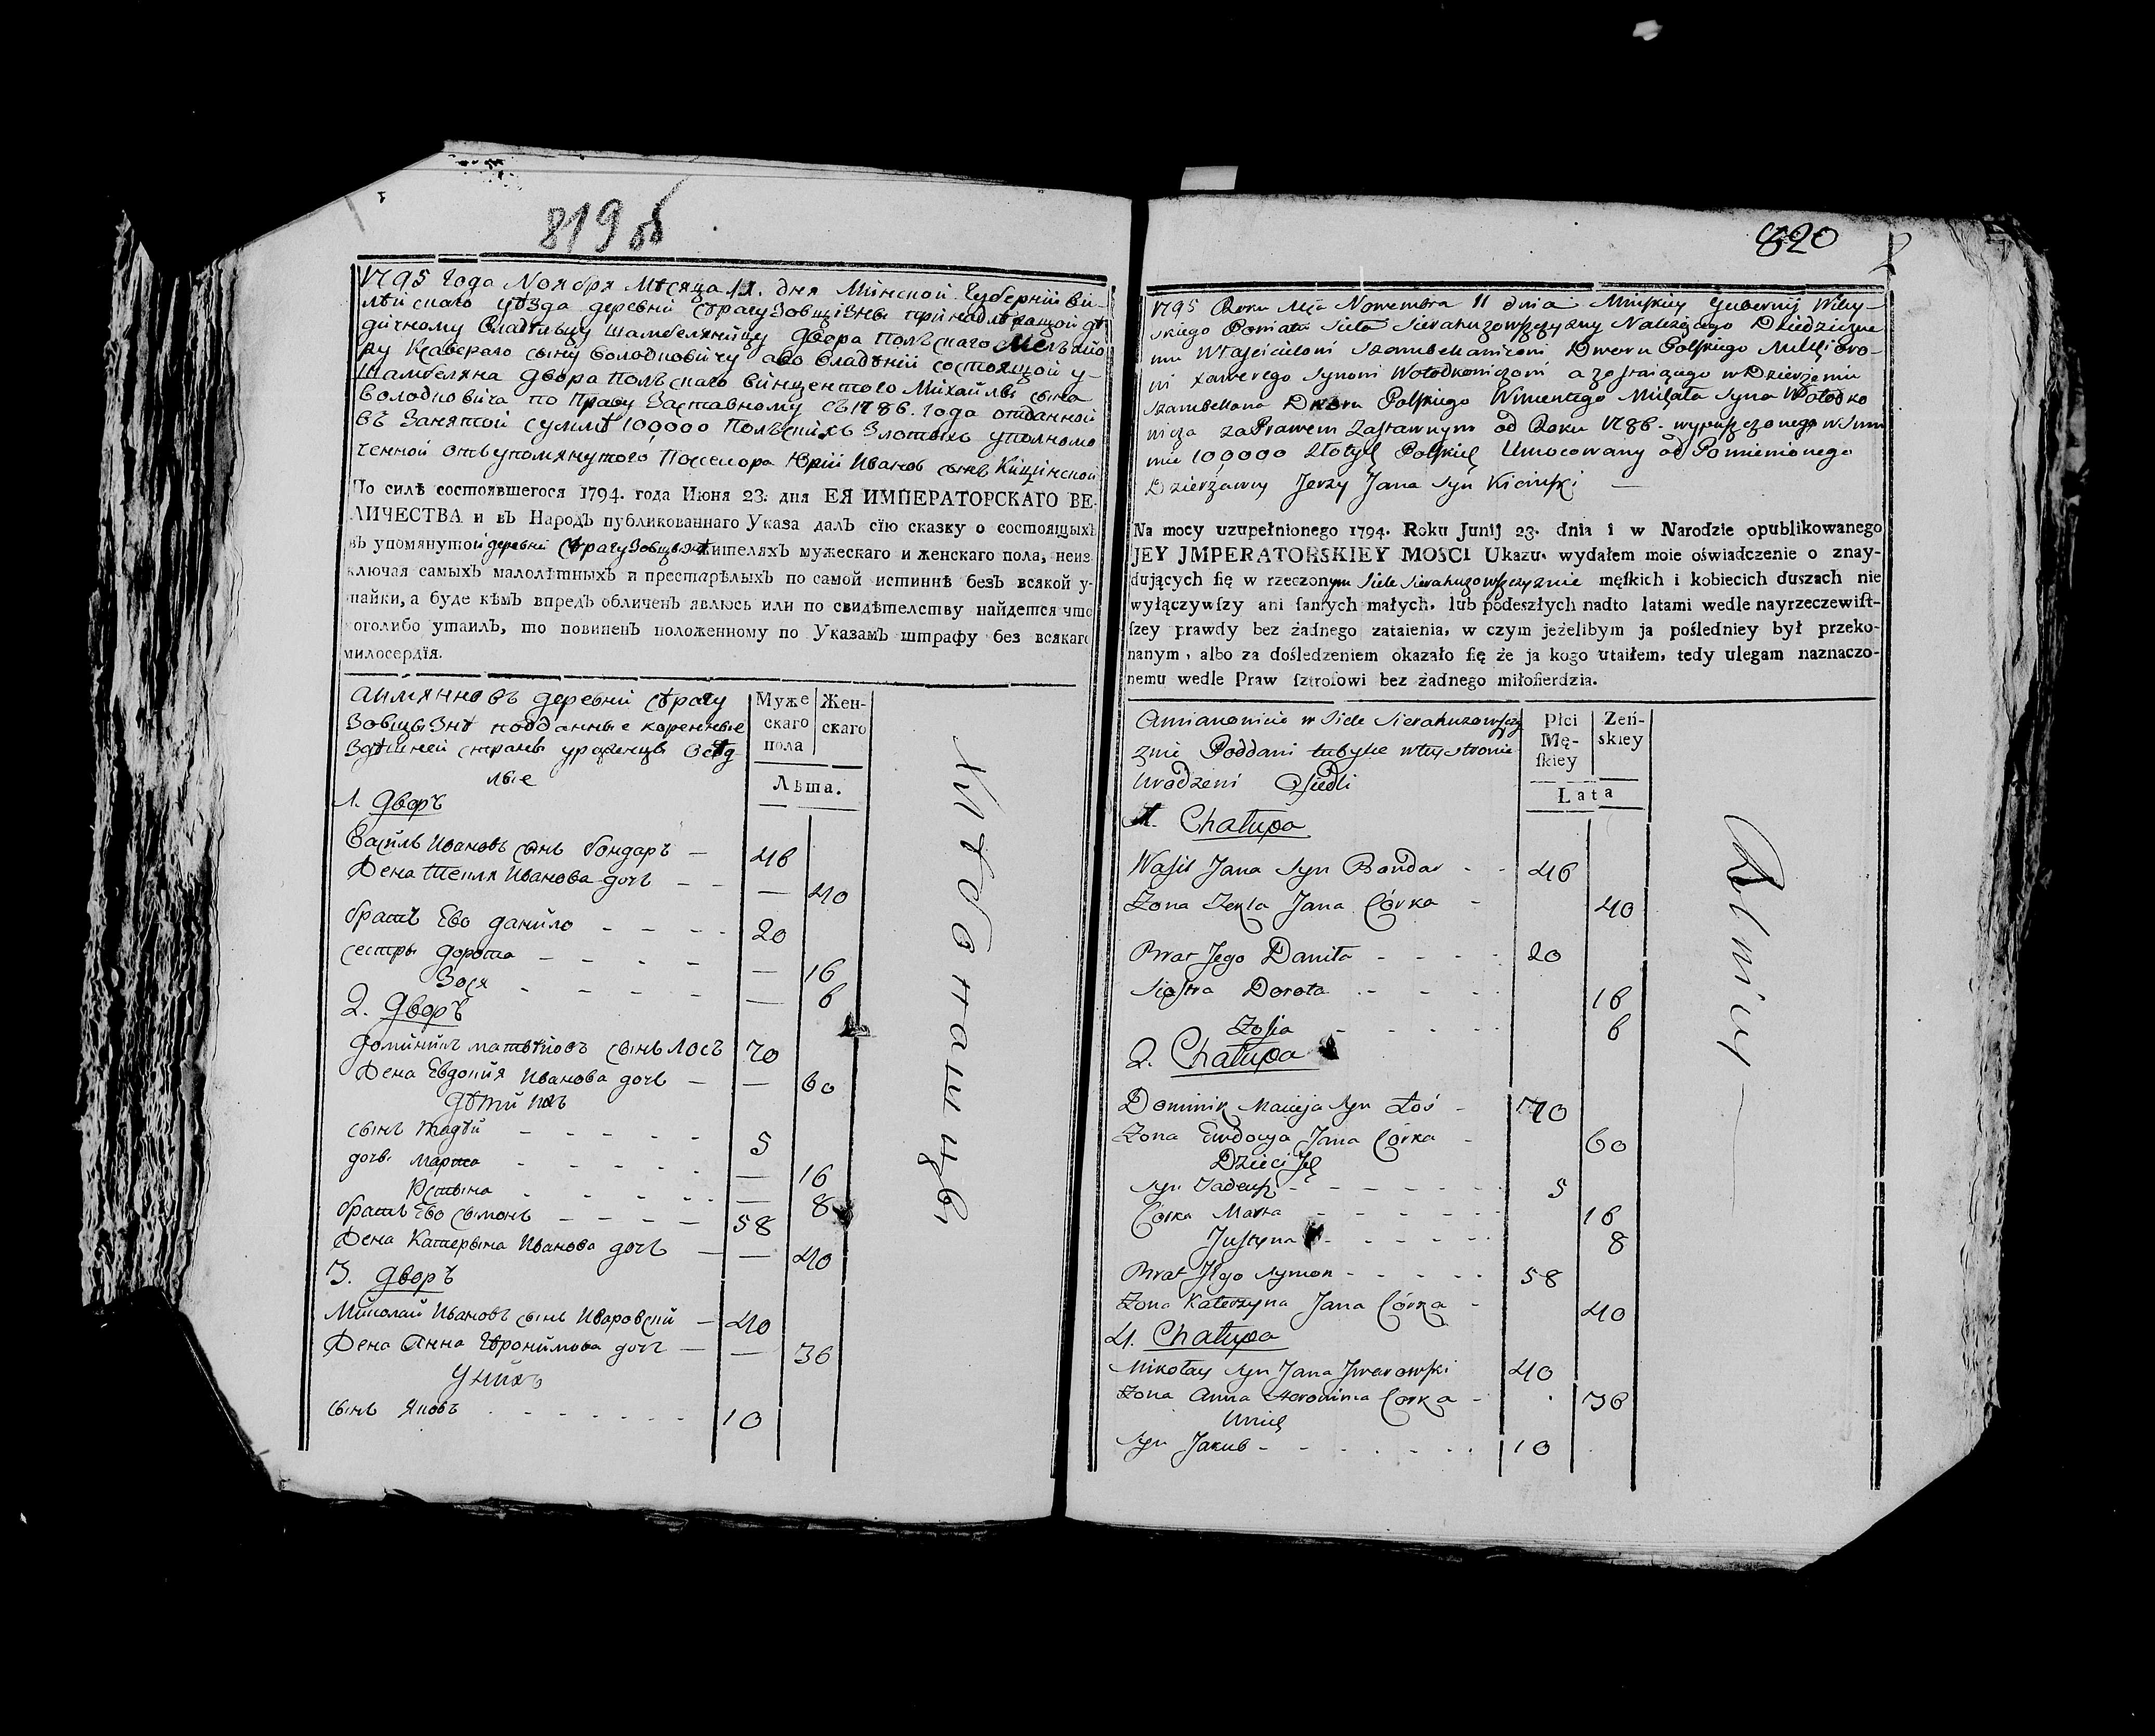 819 об
1795 Года Ноября Мѣсяца 11. дня Мінской Губерніи Ви-
лѣйскаго уѣзда деревнѣ Сѣрагузовщізны принадлѣжащой дѣ-
дичному Владѣльцу Шамбеляніцу Двора Полъскаго Мелъхіо
ру Ксаверего сыну Володковичу а во Владѣніи состоящой у-
Шамбеляна Двора Полъскаго Винцентого Михайлы сына
Володковича по Праву Заставному съ 1786. Года отданной
въ Занятой суммѣ 100,000 Полъскихъ Злотыхъ уполномо
ченной отъ упомянутого Поссесора Юрій Ивановъ сынъ Кицінской
По силѣ состоявшегося 1794. года Июня 23. дня ЕЯ ИМПЕРАТОРСКАГО ВЕ-
ЛИЧЕСТВА и въ Народъ публикованнаго Указа далъ сію сказку о состоящыхъ
въ упомянутой деревнѣ Сѣрагузовщизнѣ жителяхъ мужескаго и женскаго пола, неиз
ключая самыхъ малолѣтныхъ и престарѣлыхъ по самой истиннѣ безъ всякой у-
тайки, а буде кѣмъ впредъ обличенъ явлюсь или по свидѣтелству найдется что
оголибо утаилъ, то повиненъ положенному по Указамъ штрафу без всякаго
милосердїя.
Аимянно въ деревнѣ Сѣрагу
зовщызнѣ подданные коренные
здѣшней страны уроженцы Осѣд-
лые
Муже
скаго
пола
Жен-
скаго
Лѣта.
1. Дворъ
Василь Ивановъ сынъ Бондаръ — 46
Жена Текля Ивановa дочь — — 40
Братъ Ево Данило - - - - 20
Сестры Дорота - - - - — 16
Зося - - - - — 6
2. Дворъ
Доминикъ Матвѣйовъ сынъ Лосъ 70
Жена Евдокия Иванова дочь — — 60
Дѣти ихъ
Сынъ Тадѣй - - - - - 5
дочь Марта - - - - - — 16
Юстына - - - - - — 8
Братъ Ево Сымонъ - - - - 58
Жена Катерына Иванова дочь — — 40
3. Дворъ
Миколай Ивановъ сынъ Иваровский — 40
Жена Анна Геронимова дочь — — 36
У нихъ
Сынъ Яковъ - - - - - - - 10
820
1795 Roku Mca Nowembra 11 dnia Minskiey Gubernij Wiley-
skiego Powiatu Sieła Sierahuzowszczyzny Należącego Dziedziczne
mu Właścicielowi Szambellanicowi Dworu Polskiego Melchioro-
wi Xawerego Synowi Wołodkowiczowi a zostaiącego w Dzierzeniu
Szambellana Dworu Polskiego Wincentego Michała Syna Wołodko
wicza za Prawem Zastawnym od Roku 1786. wypuszczonego w Sum
mie 100,000 Złotych Polskich Umocowany od Pomienionego
Dzierżawcy Jerzy Jana Syn Kicinski —
Na mocy uzupełnionego 1794. Roku Junij 23. dnia i w Narodzie opublikowanego
JEY JMPERATORSKIEY MOSCI Ukazu, wydałem moie oświadczenie o znay-
dujących się w rzeczonym Siele Sierahuzowszczyznie męſkich i kobiecich duszach nie
wyłączywſzy ani ſamych małych, lub podeszłych nadto latami wedle nayrzeczewiſt-
ſzey prawdy bez żadnego zataienia, w czym jeżelibym ja poſledniey był przeko-
nanym, albo za dośledzeniem okazało się że ja kogo utaiłem, tedy ulegam naznaczo-
nemu wedle Praw ſztroſowi bez żadnego miłoſierdzia.
Amianowicie w Siele Sierahuzowszczy
znie Poddani tubylce w tuy stronie
Urodzeni Osiedli
Płci
Mę-
ſkiey
Zeń-
skiey
Lata
1. Chałupa
Wasil Jana Syn Bondar - - 46
Zona Tekla Jana Córka - 40
Brat Jego Daniła - - - - 20
Siostra Dorota - - - - 16
Zosia - - - - 6
2. Chałupa
Dominik Macieja Syn Łoś - 70
Zona Ewdocya Jana Córka - 60
Dzieci Jch
Syn Tadeusz - - - - - - 5
Corka Marta - - - - - - 16
Justyna - - - - - 8
Brat Jego Symon - - - - - 58
Zona Katerzyna Jana Córka - 40
4. Chałupa
Mikołay Syn Jana Jwarowski 40
Zona Anna Heronima Corka - 36
U nich
Syn Jakub - - - - - - - 10
Хлѣбопашцы
Rolnicy —